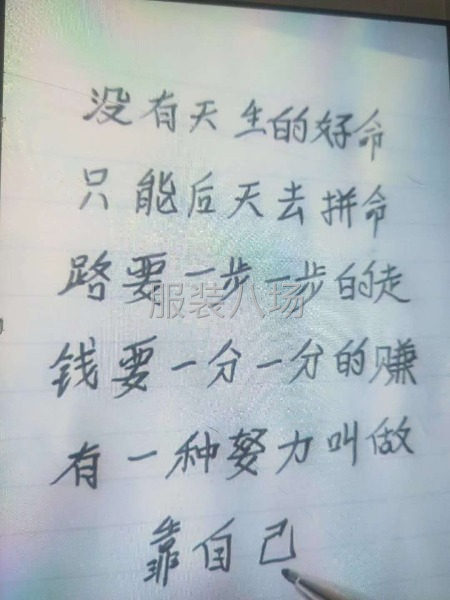 没有天生的好命
只能后天去拼命
路要一步一步的走
服装八场
钱要一分一分的赚
有一种努力叫做
靠自己